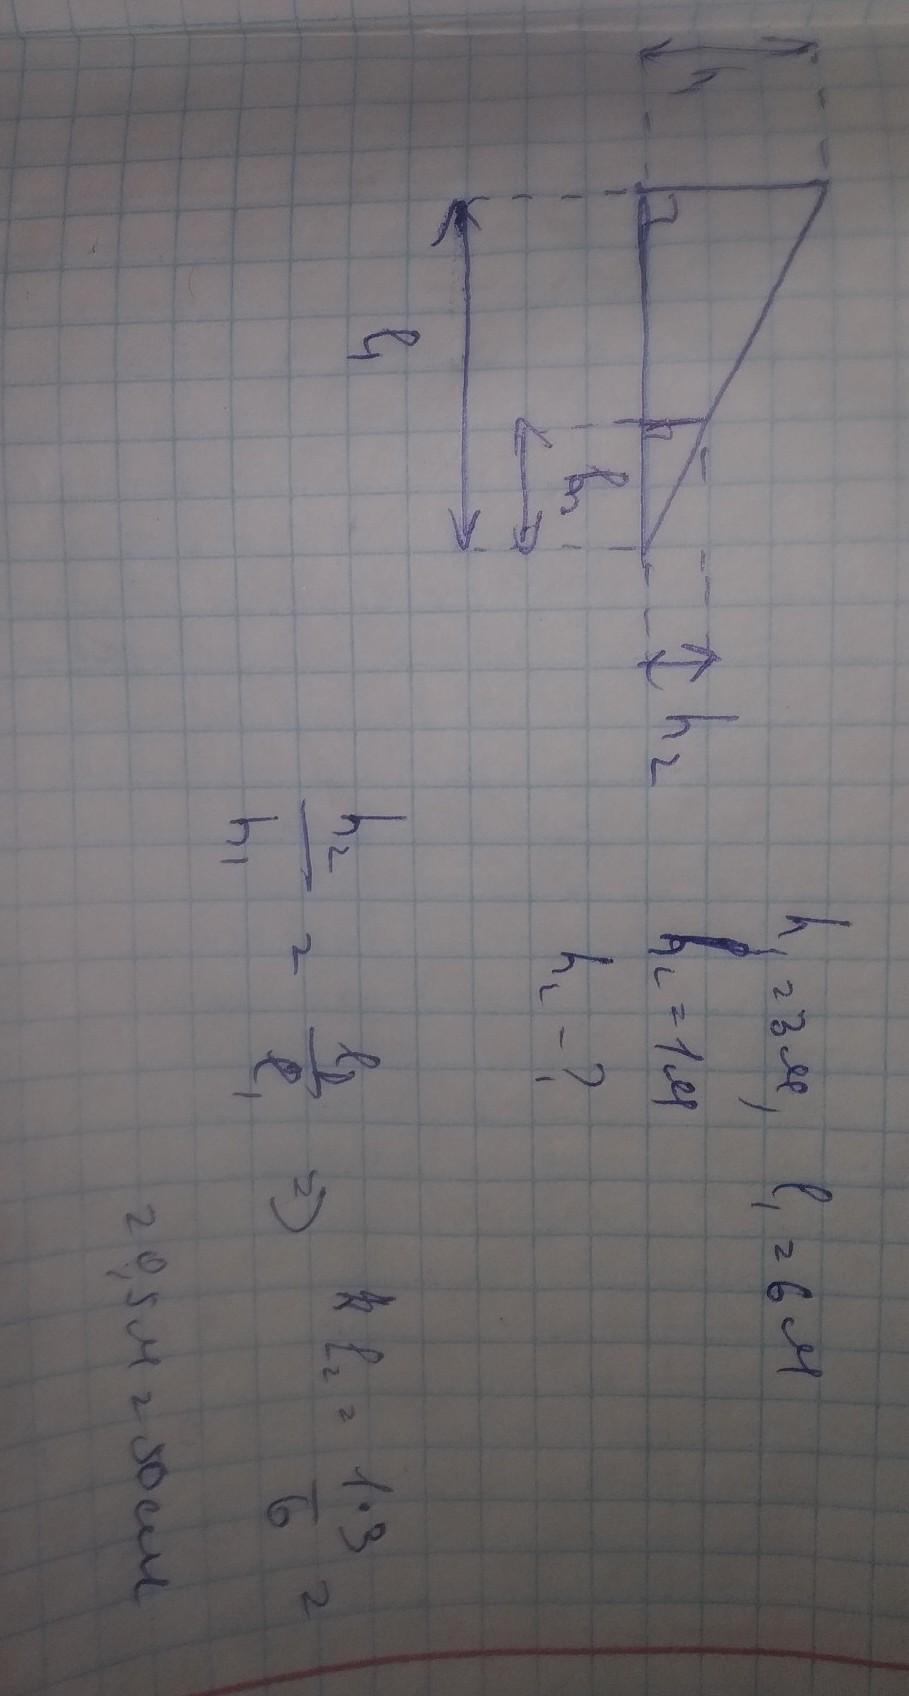 h
l₁
l₂
h₂
h₁ = 3м, l₁ = 6м
h₂ = 1м
h₂ - ?
h₂/h₁ = l₂/l₁ =>
l₂ = 1·3/6 =
= 0,5м = 50см